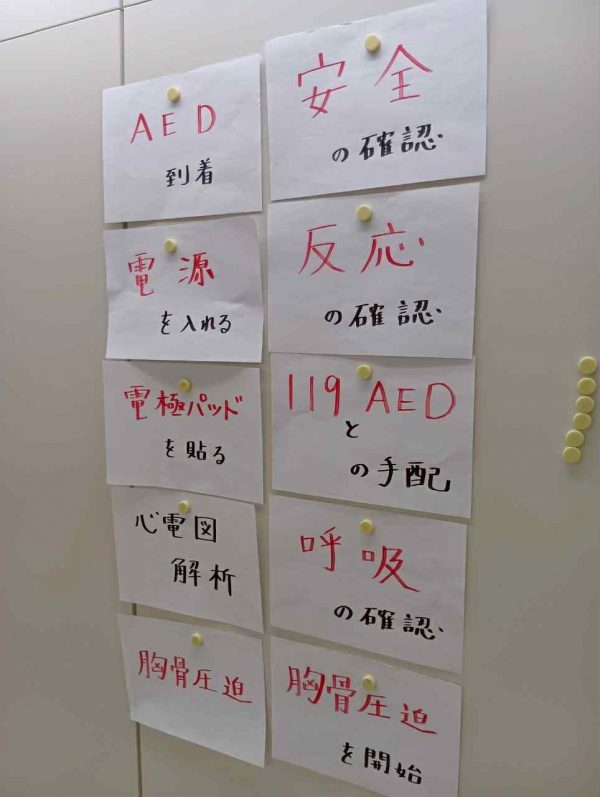 安全
の確認
反応
の確認
119 AED
と
の手配
呼吸
の確認
胸骨圧迫
を開始
AED
到着
電源
を入れる
電極パッド
を貼る
心電図
解析
胸骨圧迫